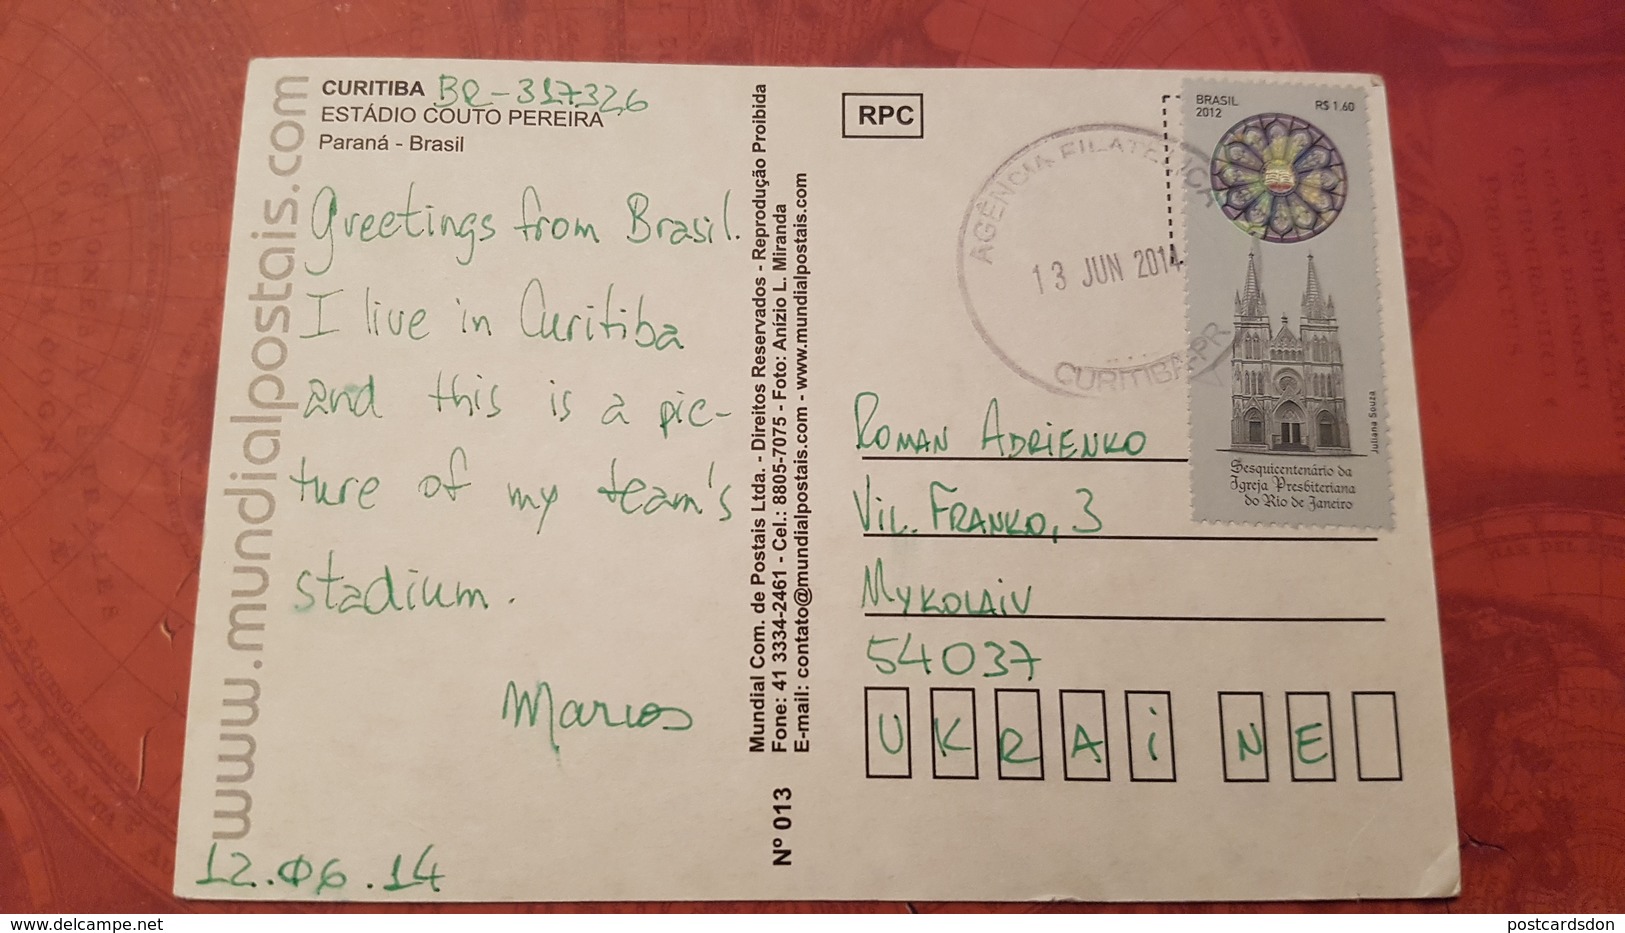 www.mundialpostais.com
CURITIBA BR-317326
ESTÁDIO COUTO PEREIRA
Paraná - Brasil
Greetings from Brasil.
I live in Curitiba
and this is a pic-
ture of my team's
stadium.
Marcos
12.06.14
Mundial Com. de Postais Ltda. - Direitos Reservados - Reprodução Proibida
Fone: 41 3334-2461 - Cel.: 8805-7075 - Foto: Anízio L. Miranda
E-mail: contato@mundialpostais.com - www.mundialpostais.com
Nº 013
RPC
AGÊNCIA FILATÉLICA
13 JUN 2014
CURITIBA-PR
BRASIL
2012
R$ 1,60
Juliana Souza
Sesquicentenário da
Igreja Presbiteriana
do Rio de Janeiro
ROMAN ADRIENKO
VIL. FRANKO, 3
MYKOLAIV
54037
UKRAiNE
postcardsdon